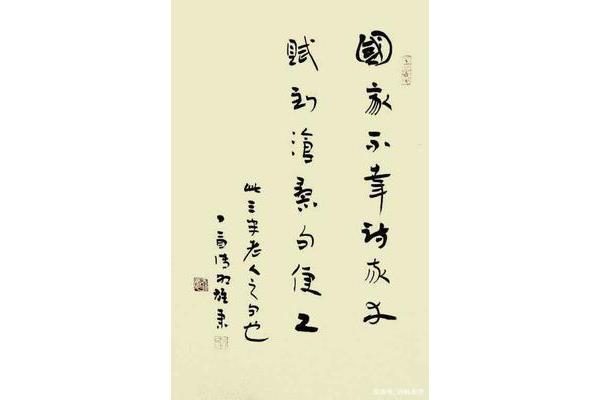 國家不幸詩家幸
賦到滄桑句便工
此三半老人之句也